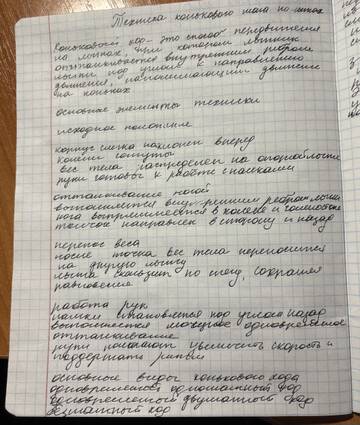 Техника конькового хода на лыжах
Коньковый ход – это способ передвижения
на лыжах, при котором лыжник
отталкивается внутренним ребром
лыжи под углом к направлению
движения, напоминающий движения
на коньках
основные элементы техники
исходное положение
корпус слегка наклонен вперед
колени согнуты
вес тела распределен на опорной лыже
руки готовы к работе с палками
отталкивание ногой
выполняется внутренним ребром лыжи
нога выпрямляется в колене и
толчок направлен в сторону и назад
перенос веса
после толчка вес тела переносится
на другую лыжу
лыжа скользит по снегу, сохраняя
равновесие
работа рук
палки ставятся под углом назад
выполняется мощное одновременное
отталкивание
руки помогают увеличить скорость и
поддержать ритм
основные виды конькового хода
одновременный одношажный ход
одновременный двухшажный ход
безшажный ход